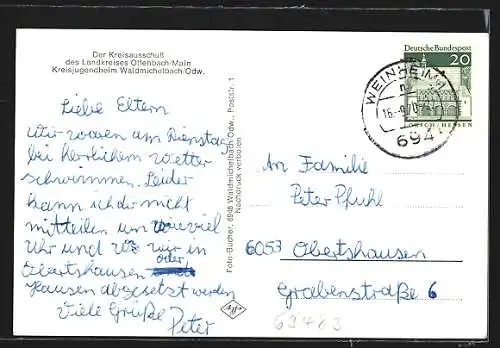 Der Kreisausschuß
des Landkreises Offenbach-Main
Kreisjugendheim Waldmichelbach/Odw.
Liebe Eltern
Wir waren am Dienstag
bei herrlichem Wetter
schwimmen. Leider
kann ich dir nicht
mitteilen um wieviel
Uhr und wo wir in
Obertshausen oder
Hausen abgesetzt werden
Viele Grüße
Peter
Foto-Bucher, 6948 Waldmichelbach Odw., Poststr. 1
Nachdruck verboten
Deutsche Bundespost
20
LORSCH/HESSEN
WEINHEIM
16.-9.70
694
An Familie
Peter Pfuhl
6053 Obertshausen
Grabenstraße 6
69483